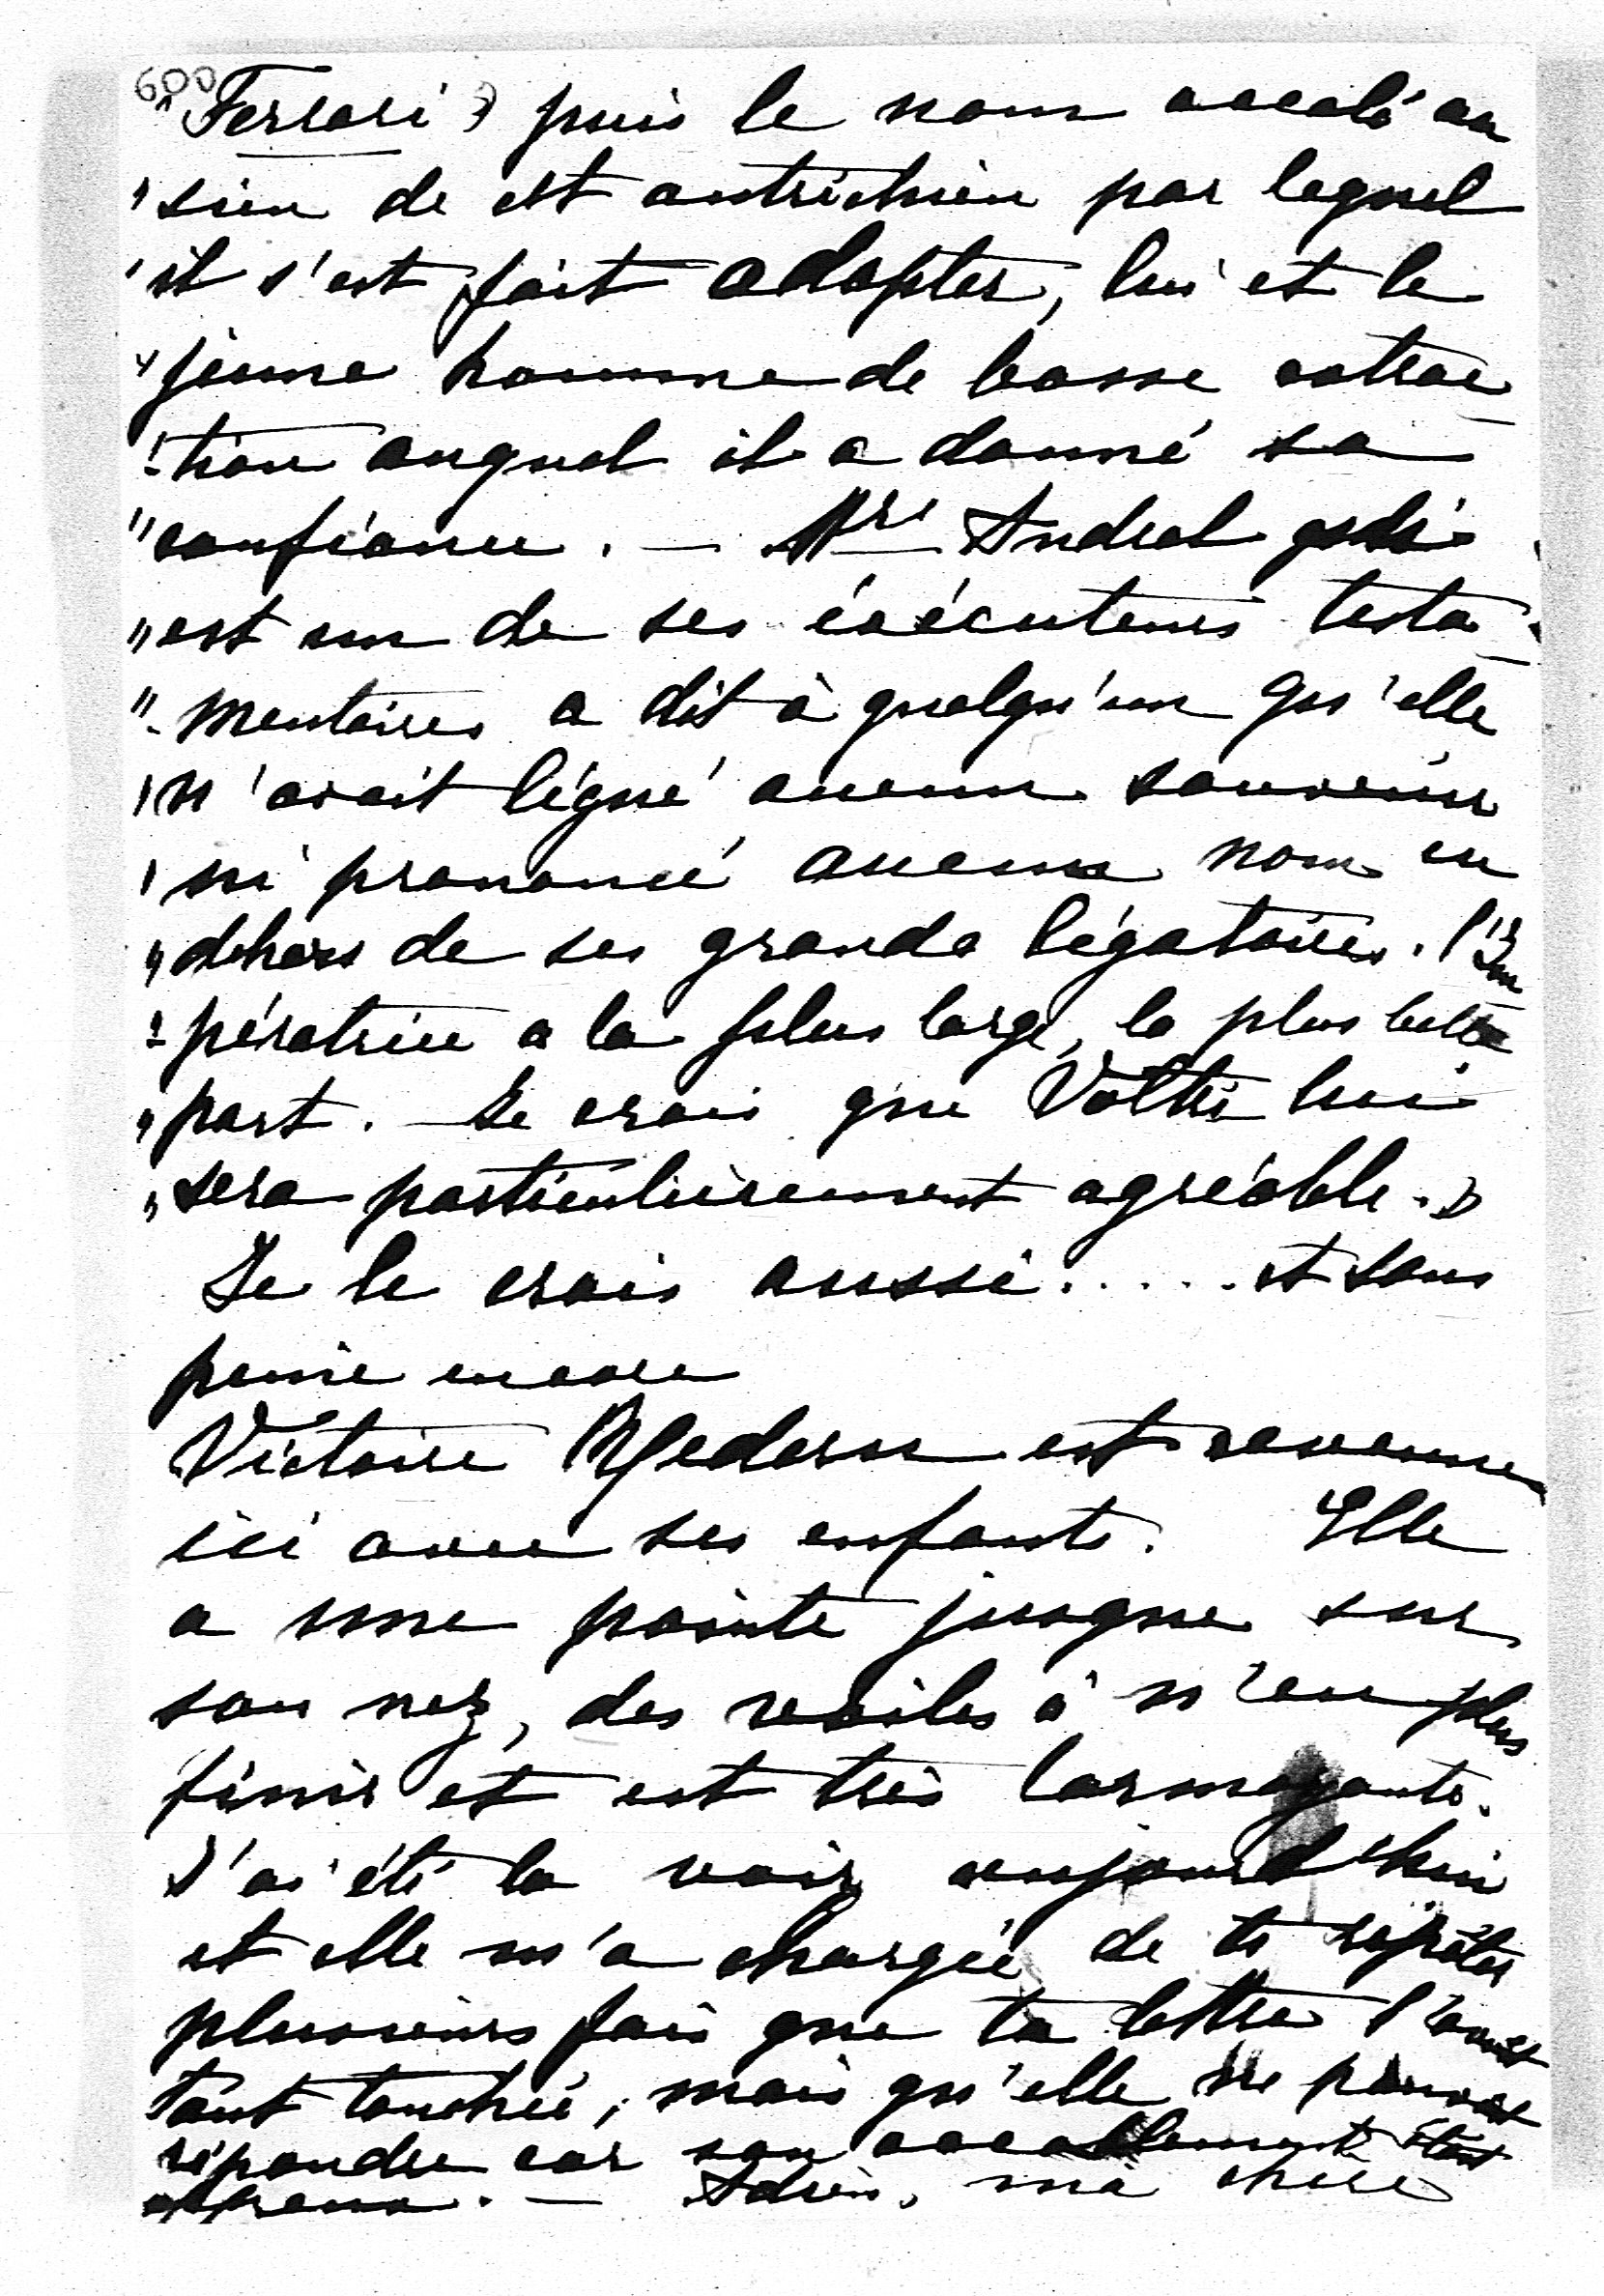 600
"Ferrari) puis le nom accolé au
"sien de cet autrichien par lequel
"il s'est fait adopter, lui et le
"jeune homme de basse extrac
"-tion auquel il a donné sa
"confiance. — Mr Andral qui
"est un de ses éxécuteurs testa-
"-mentaires a dit à quelqu'un qu'elle
"n'avait légué aucun souvenir
"ni prononcé aucun nom en
"dehors de ses grands légataires. l'Im
"-pératrice a la plus large, la plus belle
"part. — Je crois que Voltri lui
"sera particulièrement agréable.»
Je le crois aussi..... et sans
peine encore
Victoire est revenue
ici avec ses enfants. Elle
a une pointe jusque sur
son nez, des voiles à n'en plus
finir et est très larmoyante.
J'ai été la voir aujourd'hui
et elle m'a chargée de te répéter
plusieurs fois que ta lettre l'avait
tant touchée, mais qu'elle ne pouvait
répondre car son accablement était
. — Adieu, ma chère